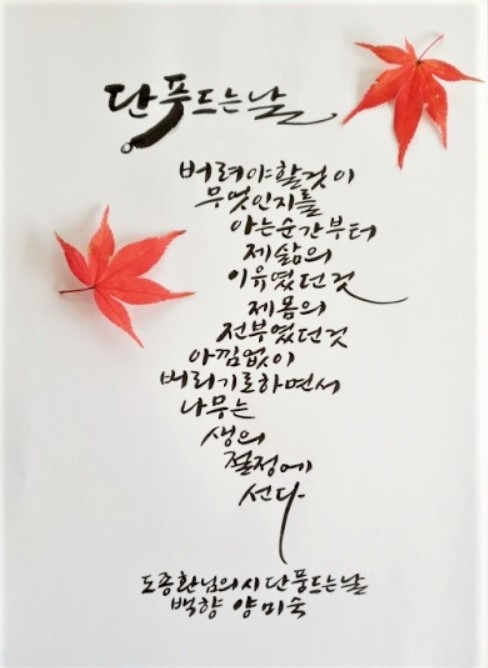 단풍드는날
버려야할것이
무엇인지를
아는순간부터
제삶의
이유였던것
제몸의
전부였던것
아낌없이
버리기로하면서
나무는
생의
절정에
선다
도종환님의시 단풍드는날
백향 양미숙